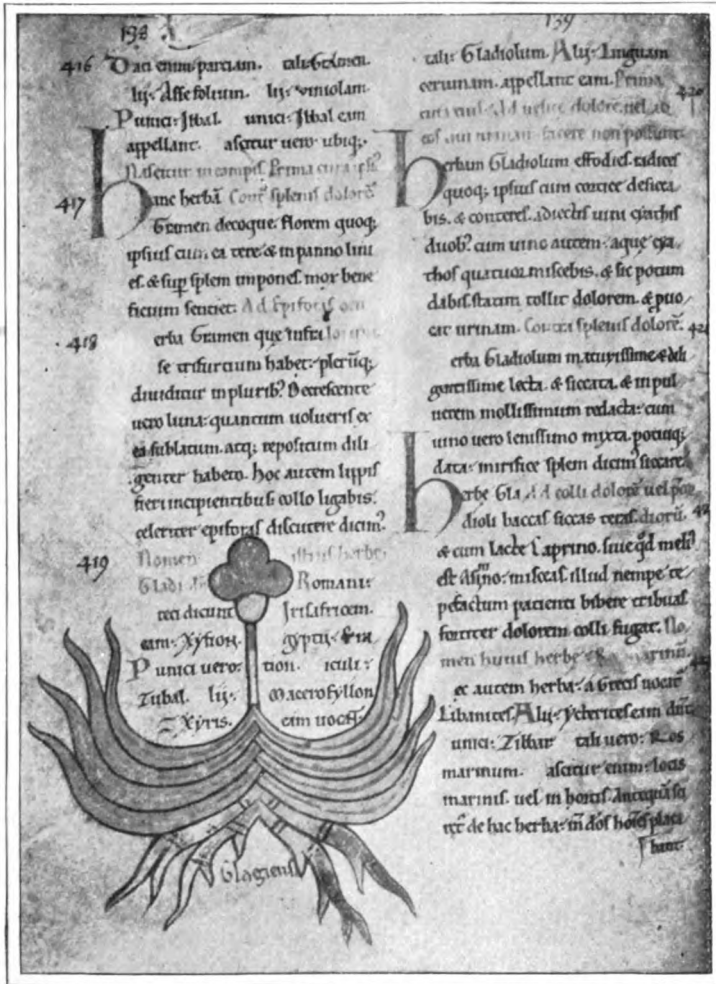 138
416 Daci enim parciam. tali: Gramen.
lij: Asse folium. lij: viniolam
Punici: Jtbal. unici: Jtbal eam
appellant. ascitur uero ubiq;
Nascitur in campis. Prima cura
417 hanc herbā Cont̄ splenis dolorē
Gramen decoque. florem quoq;
ipsius cum ea tere. & in panno lini
es. & sup splem impones. mox bene
ficium sentiet. Ad Epiforis
418 erba Gramen que infra
se trifurcium habet: plerūq;
diuiditur in pluribꝰ. Decrescente
uero luna: quantum uolueris ex
ea sublatum. atq; repositum dili
genter habeto. hoc autem lippis
fieri incipientibus collo ligabis.
celeriter epiforas discutere
419 Nomen istius herbe
Gladi Romani:
reci dicunt Jrisifricam.
eam: Xyfion. gyptij:
Punici uero: tion. iculi:
Tubal. lij: Macerofyllon
Xyris. eam uocāt.
Glagiens
139
tali: Gladiolum. Alij: Linguam
ceruinam. appellant eam. Prima
cura eius. Ad uesice dolorē. uel ad 420
eos qui urinam facere non possunt.
herbam Gladiolum effodies. radices
quoq; ipsius cum cortice desicca
bis. & conteres. adiectis uini cyathis
duobꝰ. cum uino autem: aque cya
thos quatuor miscebis. & sic potum
dabis. statim tollit dolorem. & puo
cat urinam. Contra splenis dolorē. 421
erba Gladiolum maturissime & dili
gentissime lecta. & siccata. & in pul
uerem mollissimum redacta: cum
uino uero lenissimo mixta. potuiq;
data: mirifice splem siccare.
herbe Gla Ad colli dolorē uel
dioli baccas siccas teras.
& cum lacte Caprino. siue qd̄ meliꝰ
est Asinino: misceas. illud nempe te
pefactum pacienti bibere tribuas
fortiter dolorem colli fugat. No
men huius herbe: Ros marinū.
ec autem herba: a Grecis uocat̄
Libanites. Alij: Ycterites eam dn̄t
unici: Zibbar tali uero: Ros
marinum. ascitur enim: locis
marinis. uel in hortis. Antequā
de hac herba: